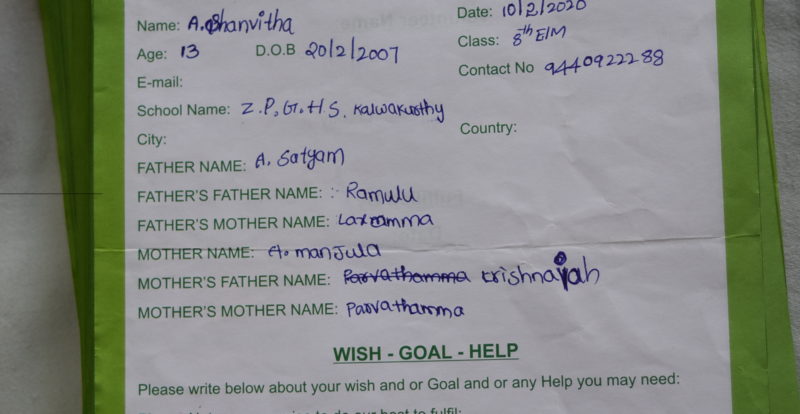 Name: A. Shanvitha
Date: 10/2/2020
Age: 13 D.O.B 20/2/2007
Class: 8th E/M
E-mail:
Contact No 9440922288
School Name: Z.P.G.H.S. Kalwakurthy
City:
Country:
FATHER NAME: A. Satyam
FATHER'S FATHER NAME: :- Ramulu
FATHER'S MOTHER NAME: Laxmamma
MOTHER NAME: A. manjula
MOTHER'S FATHER NAME: Parvathamma krishnaiah
MOTHER'S MOTHER NAME: Parvathamma
WISH - GOAL - HELP
Please write below about your wish and or Goal and or any Help you may need: